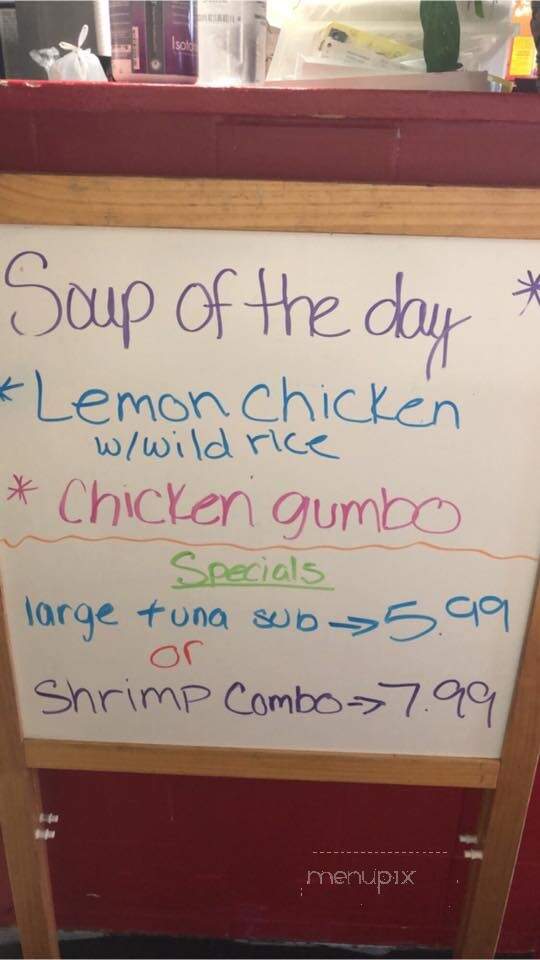 Isofo
Soup of the day *
* Lemon Chicken
w/wild rice
* Chicken gumbo
Specials
large tuna sub → 5.99
or
Shrimp Combo → 7.99
menupix